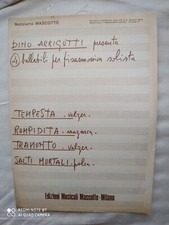 Notiziario MASCOTTE
DINO ARRIGOTTI presenta
4 ballabili per fisarmonica solista
TEMPESTA . valzer.
ROMPIDITA . mazurca.
TRAMONTO . valzer.
SALTI MORTALI . polca.
Edizioni Musicali Mascotte - Milano